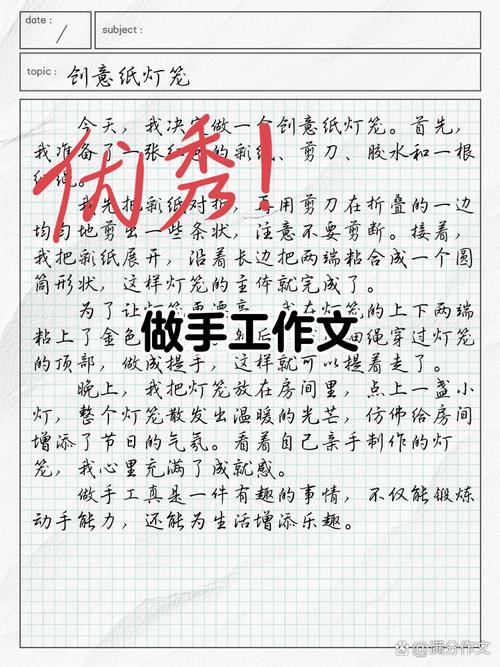 date:
subject:
topic: 创意纸灯笼
今天，我决定做一个创意纸灯笼。首先，
我准备了一张红色的彩纸、剪刀、胶水和一根
优秀！
我先把彩纸对折，再用剪刀在折叠的一边
均匀地剪出一些条状，注意不要剪断。接着，
我把彩纸展开，沿着长边把两端粘合成一个圆
筒形状，这样灯笼的主体就完成了。
为了让灯笼更漂亮，我在灯笼的上下两端
粘上了金色
后
细绳穿过灯笼
做手工作文
的顶部，做成提手，这样就可以提着走了。
晚上，我把灯笼放在房间里，点上一盏小
灯，整个灯笼散发出温暖的光芒，仿佛给房间
增添了节日的气氛。看着自己亲手制作的灯
笼，我心里充满了成就感。
做手工真是一件有趣的事情，不仅能锻炼
动手能力，还能为生活增添乐趣。
@满分作文